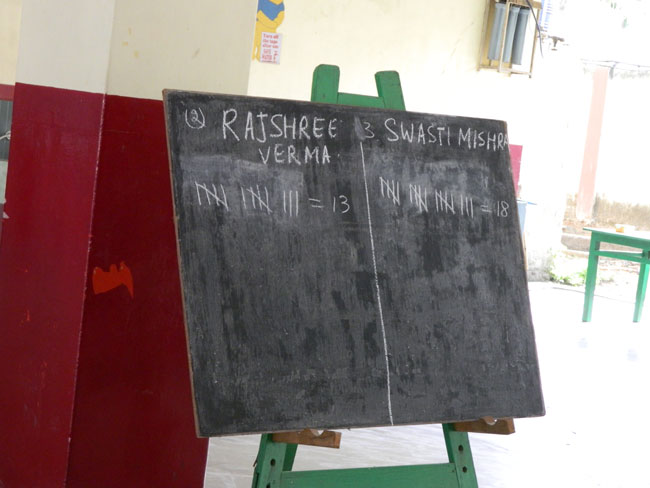 ② RAJSHREE
VERMA.
𝍸 𝍸 ||| = 13
3 SWASTI MISHRA
𝍸 𝍸 𝍸 ||| = 18